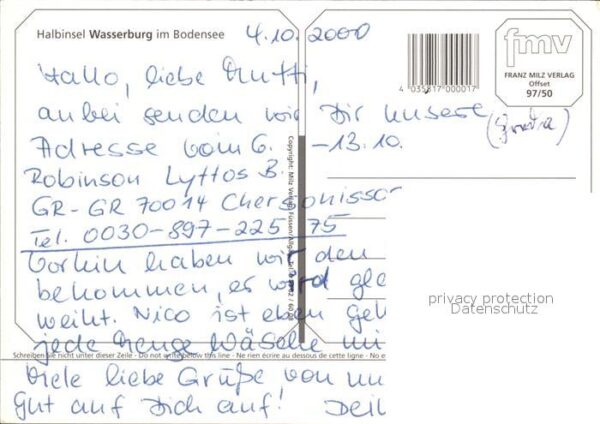 Halbinsel Wasserburg im Bodensee
4.10.2000
fmv
FRANZ MILZ VERLAG
Offset
97/50
4 035817 000017
Hallo, liebe Mutti,
anbei senden wir Dir unsere
Adresse vom 6. -13.10.
Robinson Lyttos B.
GR-GR 70014 Chersonissor
Tel. 0030-897-225 75
Vorhin haben wir den
bekommen, es wird gle
weiht. Nico ist eben gel
jede Menge Wäsche mi
Schreiben Sie nicht unter dieser Zeile - Do not write below this line - Ne rien écrire au dessous de cette ligne - No e
Viele liebe Grüße von un
Gut auf Dich auf! Dei
Copyright: Milz Verlag Füssen/Allgäu
privacy protection
Datenschutz